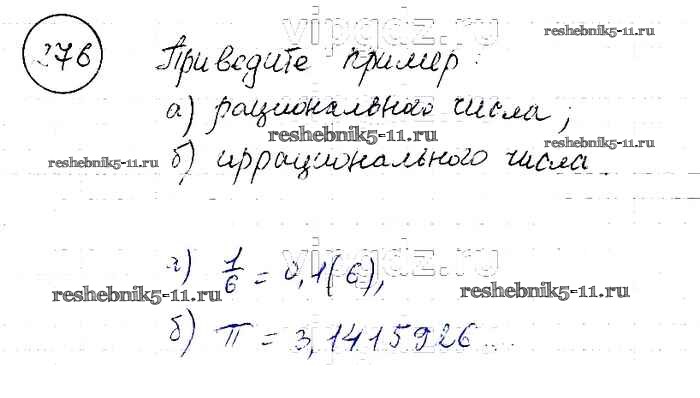 vipgdz.ru
376 Приведите пример:
reshebnik5-11.ru
а) рационального числа;
reshebnik5-11.ru
reshebnik5-11.ru
б) иррационального числа.
reshebnik5-11.ru
vipgdz.ru
а) 1/6 = 0,1(6),
reshebnik5-11.ru
reshebnik5-11.ru
б) π = 3,1415926...
vipgdz.ru